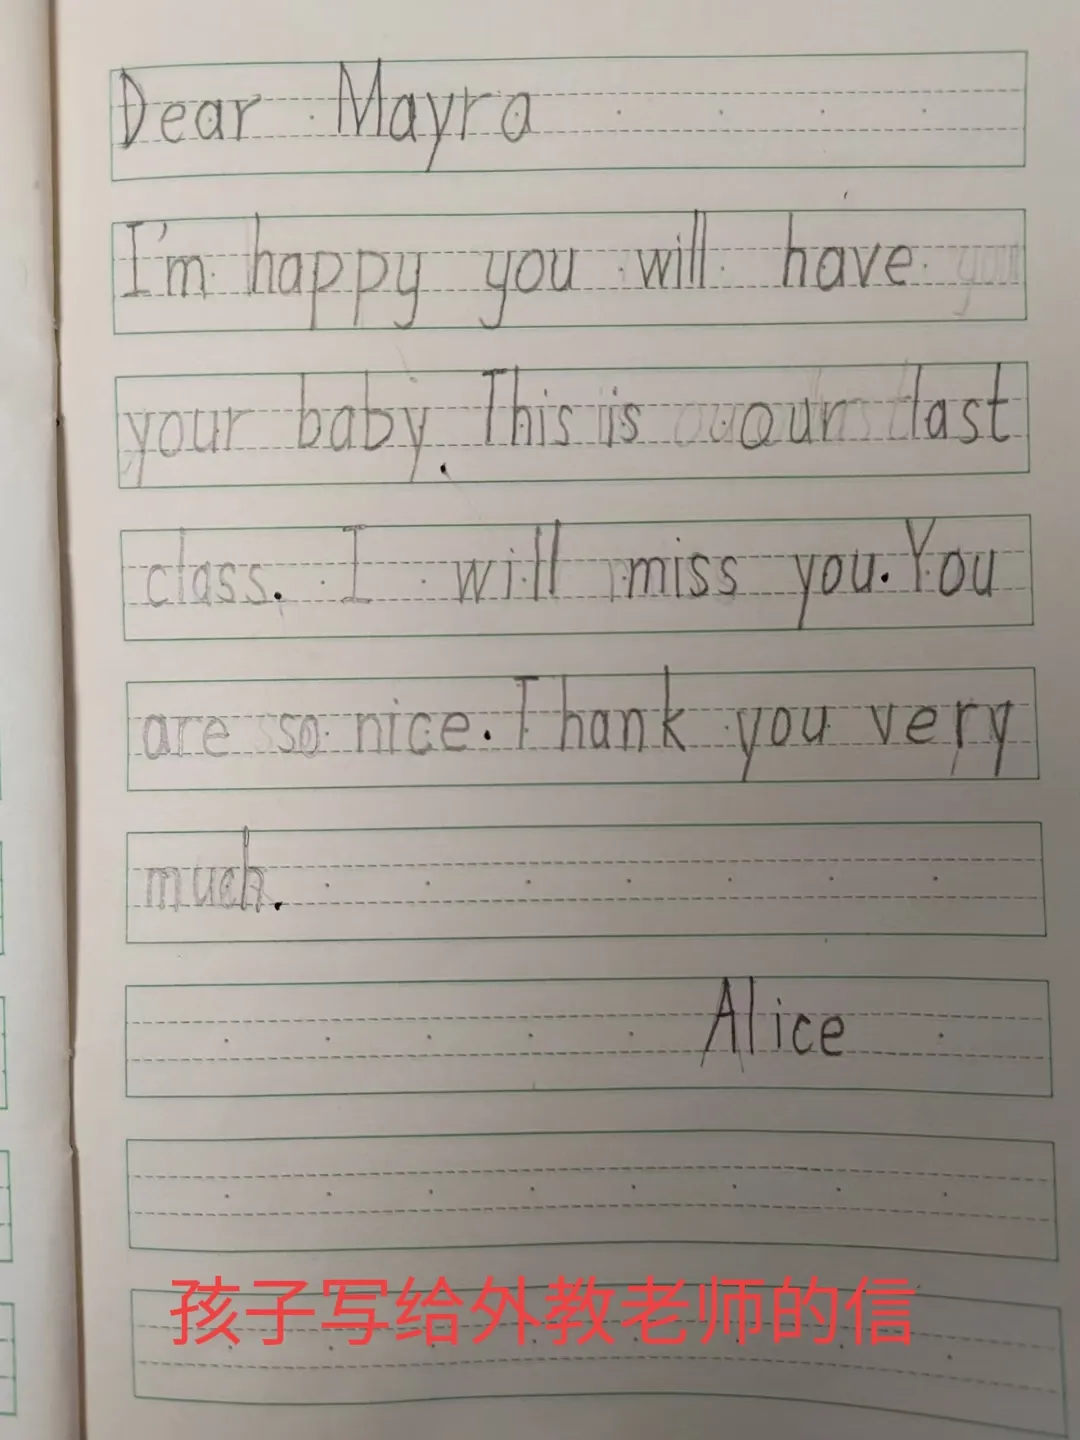 Dear Mayra
I'm happy you will have
your baby. This is our last
class. I will miss you. You
are so nice. Thank you very
much.
Alice
孩子写给外教老师的信